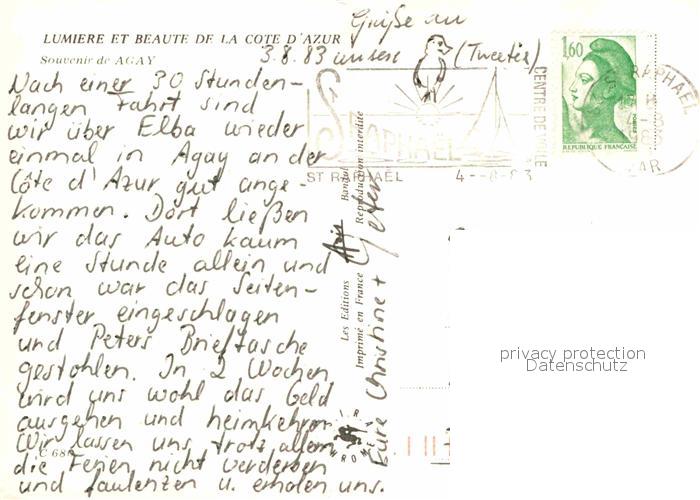 Grüße an
LUMIERE ET BEAUTE DE LA COTE D'AZUR
3.8.83 unsere (Tweetie)
Souvenir de AGAY
Nach einer 30 Stunden-
langen Fahrt sind
wir über Elba wieder
einmal in Agay an der
Côte d'Azur gut ange-
kommen. Dort ließen
wir das Auto kaum
eine Stunde allein und
schon war das Seiten-
fenster eingeschlagen
und Peters Brieftasche
gestohlen. In 2 Wochen
wird uns wohl das Geld
ausgehen und heimkehren.
Wir lassen uns trotz allem
die Ferien nicht verderben
und faulenzen u. erholen uns.
Eure Christine + Peter
Les Editions Aris Bandol
Imprimé en France Reproduction interdite
C 68
MIRA
CHROME
ST RAPHAEL
ST RAPHAËL 4--8-83
CENTRE DE VILLE
1,60
REPUBLIQUE FRANÇAISE
RAPHAEL
H
4-8
1983
VAR
privacy protection
Datenschutz